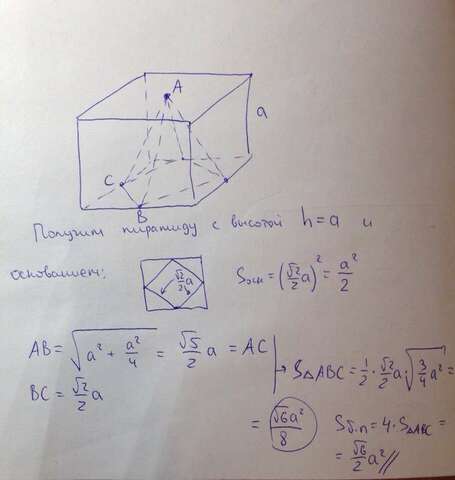 A
a
C
B
Получим пирамиду с высотой h = a и
основанием:
√2/2 a
Sосн = (√2/2 a)² = a²/2
AB = √(a² + a²/4) = √5/2 a = AC
BC = √2/2 a
→ S△ABC = 1/2 · √2/2 a · √(3/4 a²) =
= √6a²/8
Sб.п = 4 · S△ABC =
= √6/2 a² //